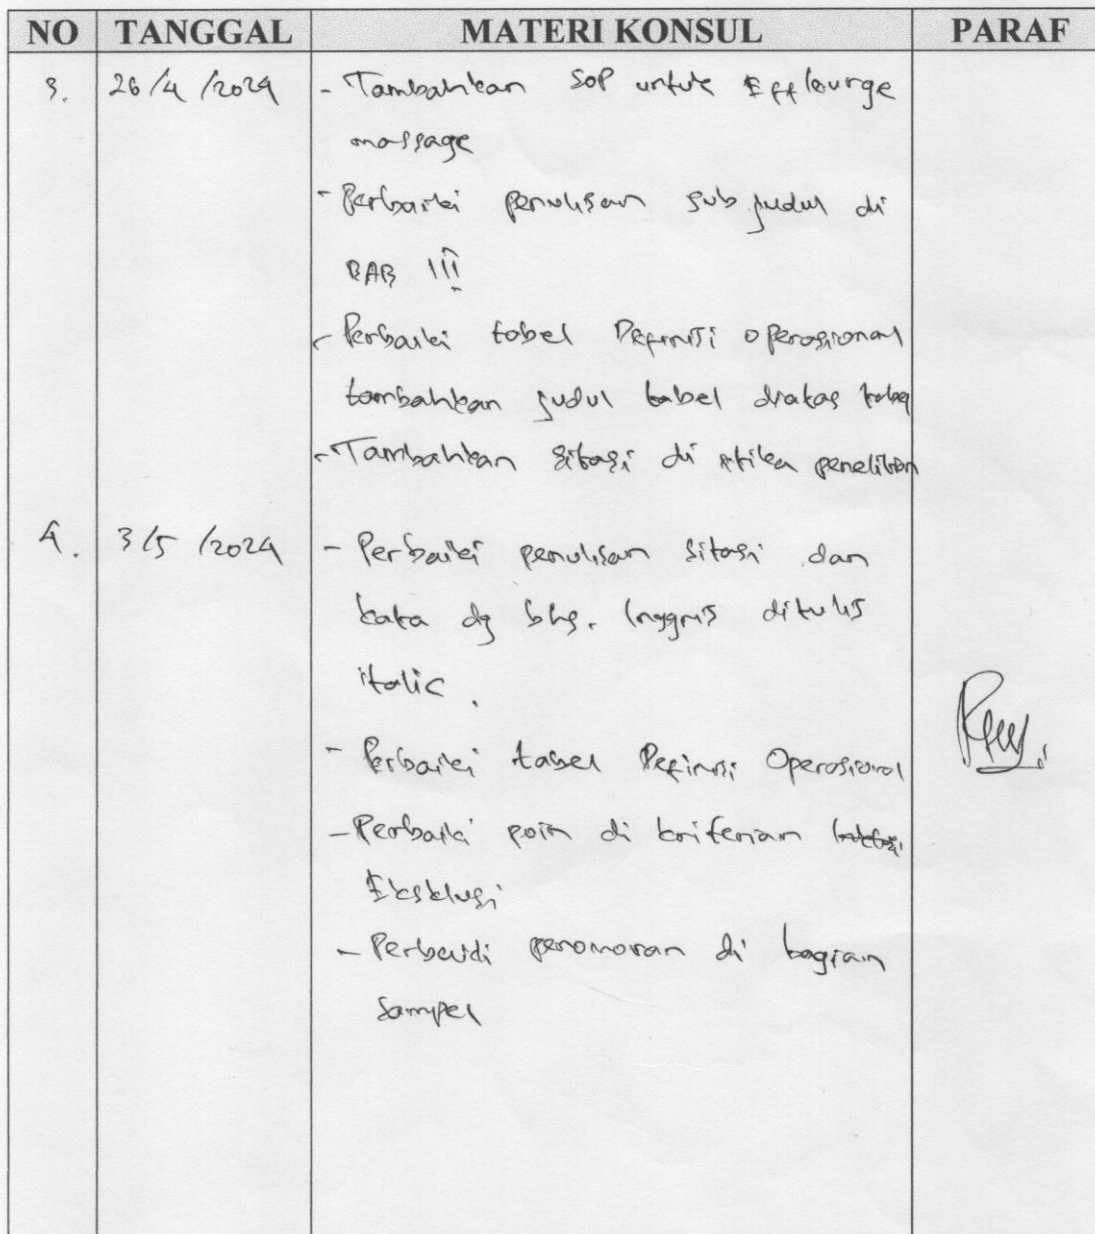 NO TANGGAL MATERI KONSUL PARAF
3. 26/4/2024 - Tambahkan SOP untuk Efflourge
massage
- Perbaiki penulisan sub judul di
BAB III
- Perbaiki tabel Definisi Operasional
tambahkan judul tabel diatas tabel
- Tambahkan sitasi di etika penelitian
4. 3/5/2024 - Perbaiki penulisan sitasi dan
kata dg bhs. Inggris ditulis
italic.
- Perbaiki tabel Definisi Operasional
- Perbaiki poin di kriterian
Eksklusi
- Perbaiki penomoran di bagian
Sampel